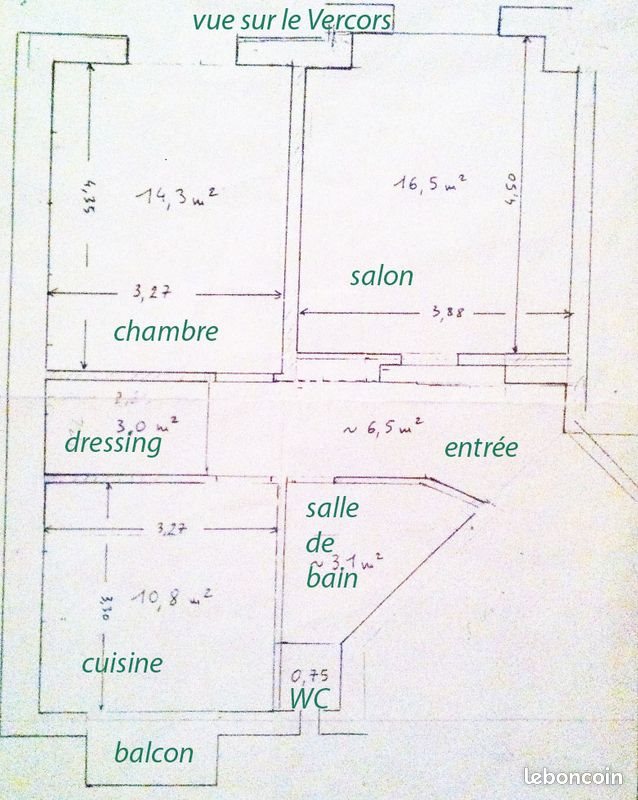 vue sur le Vercors
4,35
14,3 m²
16,5 m²
4,50
salon
3,27
3,88
chambre
3,0 m²
~ 6,5 m²
dressing
entrée
salle
de
bain
3,27
~ 3,1 m²
3,30
10,8 m²
cuisine
0,75
WC
balcon
leboncoin